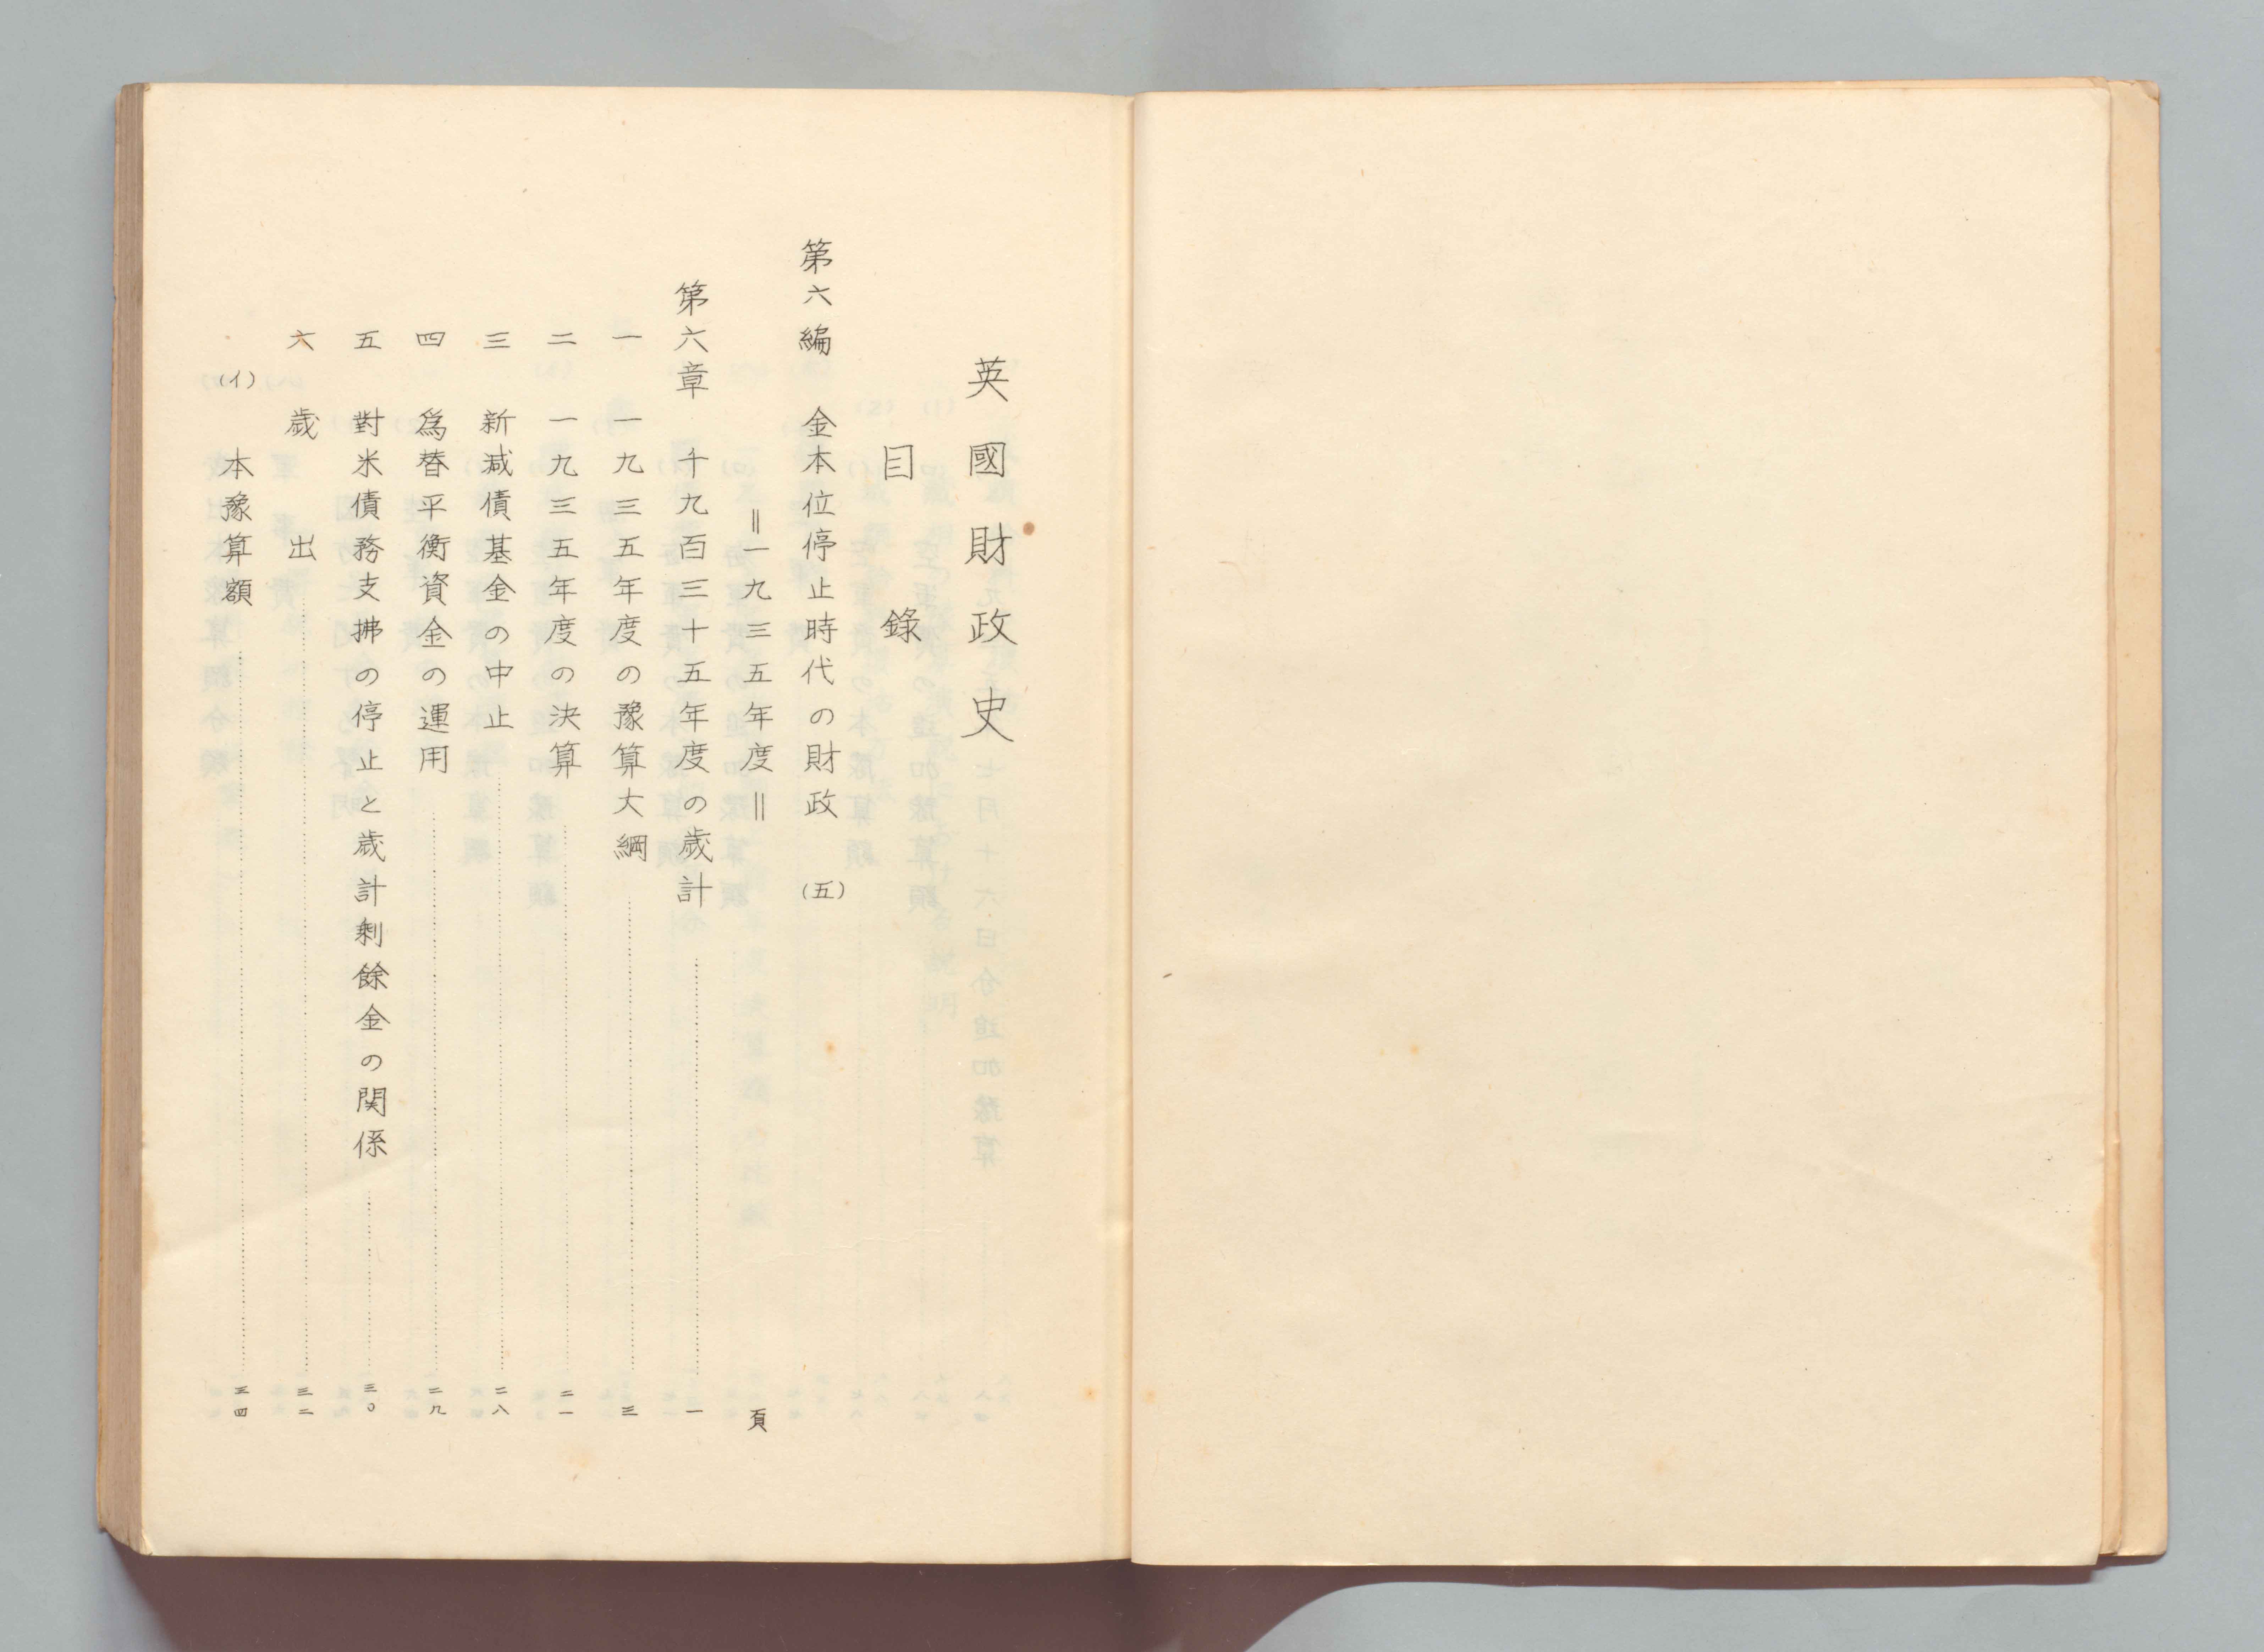 英國財政史
目錄
第六編 金本位停止時代の財政 (五)
‖一九三五年度‖ 頁
第六章 千九百三十五年度の歳計……一
一 一九三五年度の豫算大綱……三
二 一九三五年度の決算……二一
三 新減債基金の中止……二八
四 爲替平衡資金の運用……二九
五 對米債務支拂の停止と歳計剩餘金の関係……三〇
六 歳出……三二
(イ) 本豫算額……三四